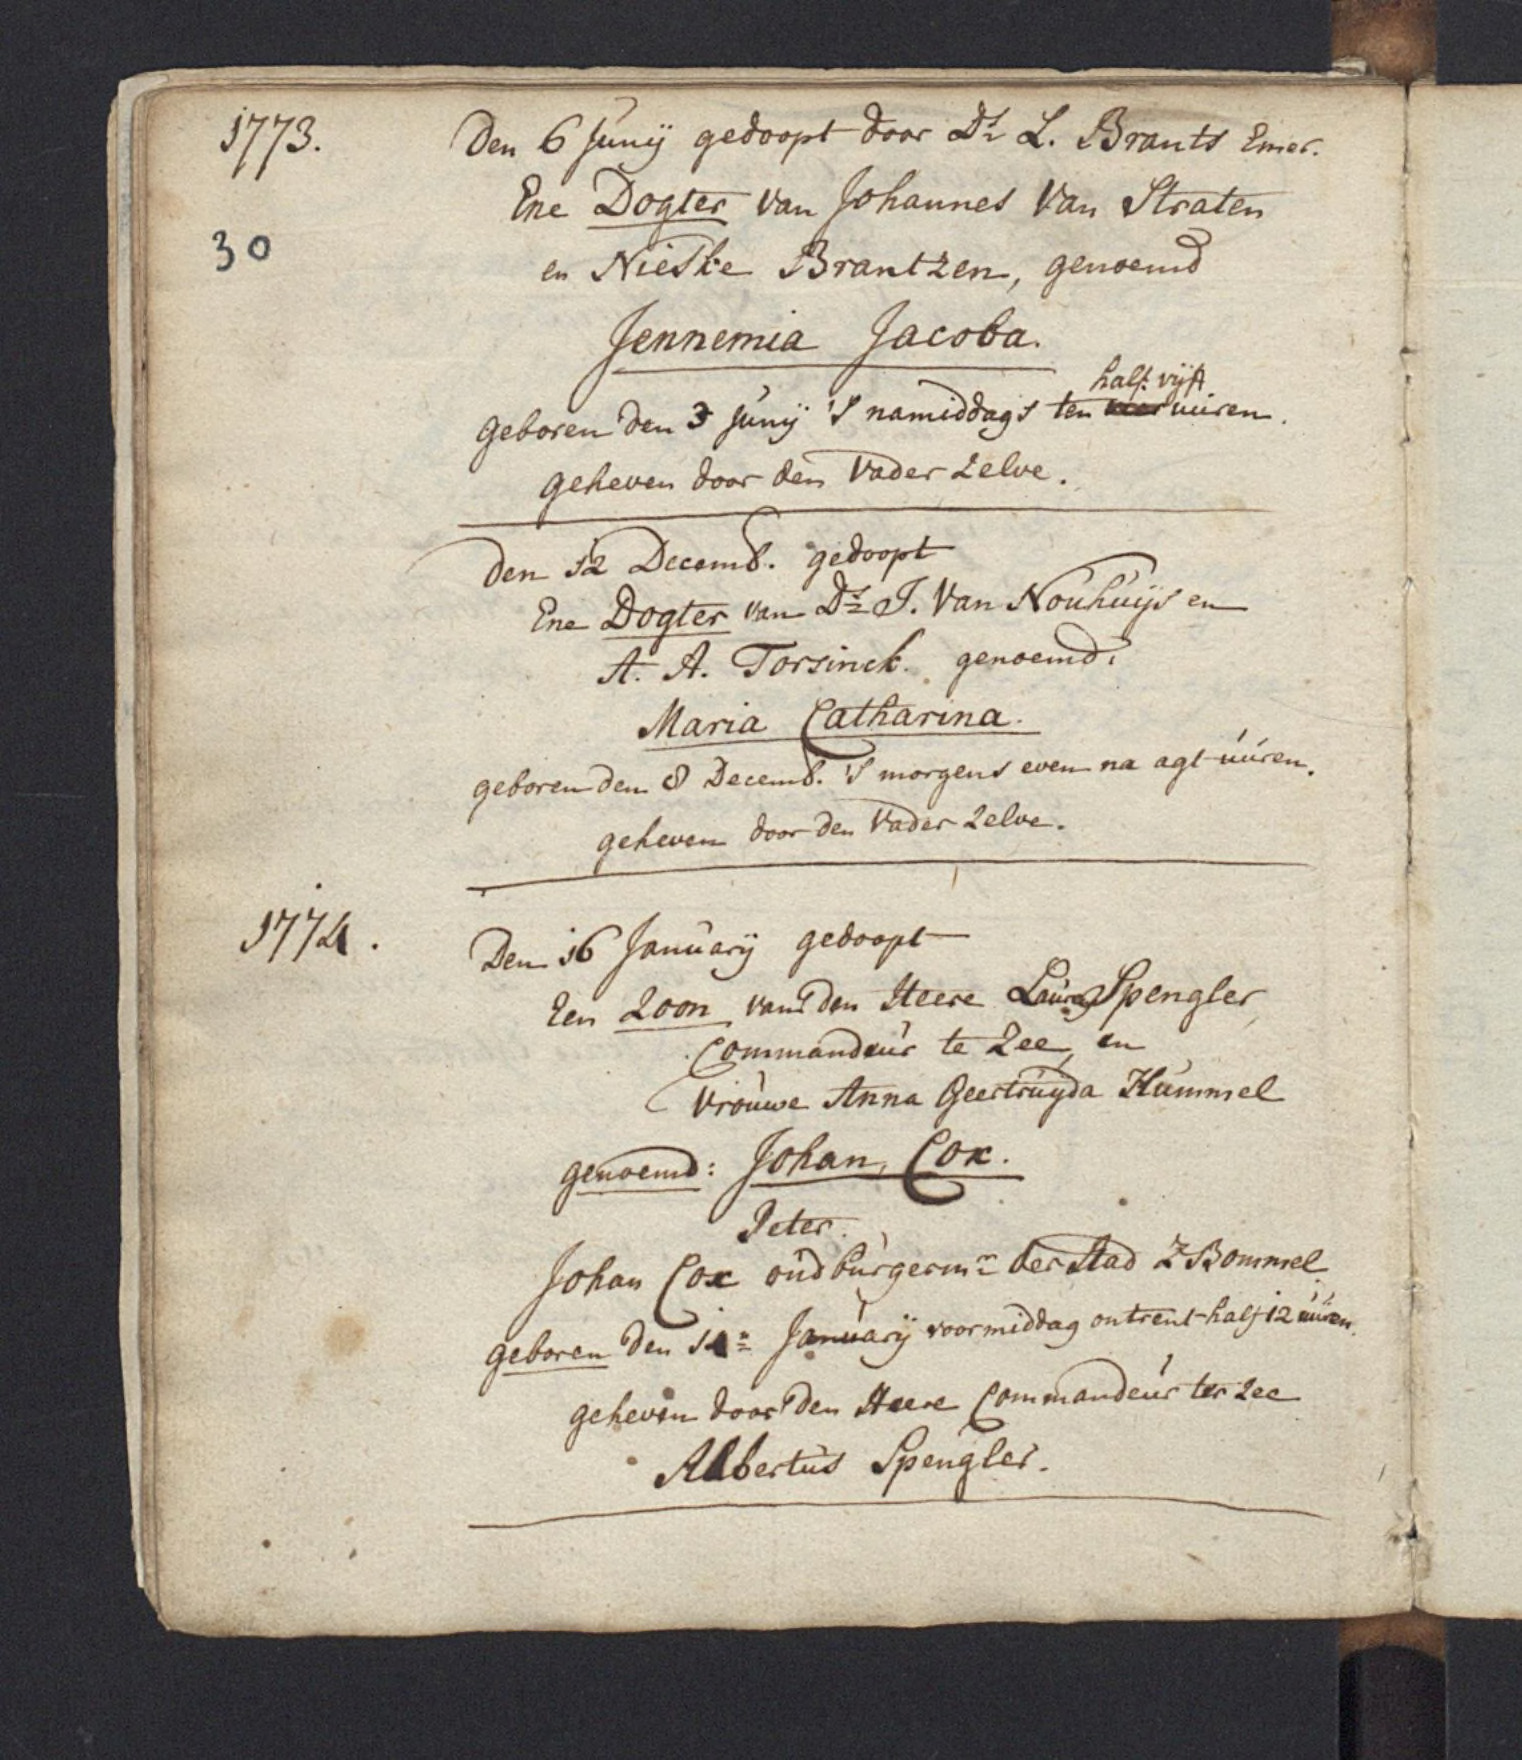 1773.
Den 6 Junij gedoopt door Ds L. Brants Emer.
Ene Dogter van Johannes Van Straten
30
en Nieske Brantzen, genoemd
Jennemia Jacoba.
half vijf
Geboren den 3 Junij 's namiddags ten uuren.
geheven door den Vader zelve.
Den 12 Decemb. gedoopt
Ene Dogter van Ds J. Van Nouhuijs en
A. A. Torsinck. genoemd:
Maria Catharina.
geboren den 8 Decemb. 's morgens even na agt uuren.
geheven door den Vader zelve.
1774.
Den 16 Januarij gedoopt
Een Zoon van den Heere Spengler,
Commandeur te Zee, en
Vrouwe Anna Geertruijda Hummel
genoemd: Johan, Cox.
Peter.
Johan Cox oudburgermr der Stad ZBommel
geboren den Januarij voormiddag ontrent half 12 uuren.
geheven door den Heere Commandeur ter Zee
Albertus Spengler.